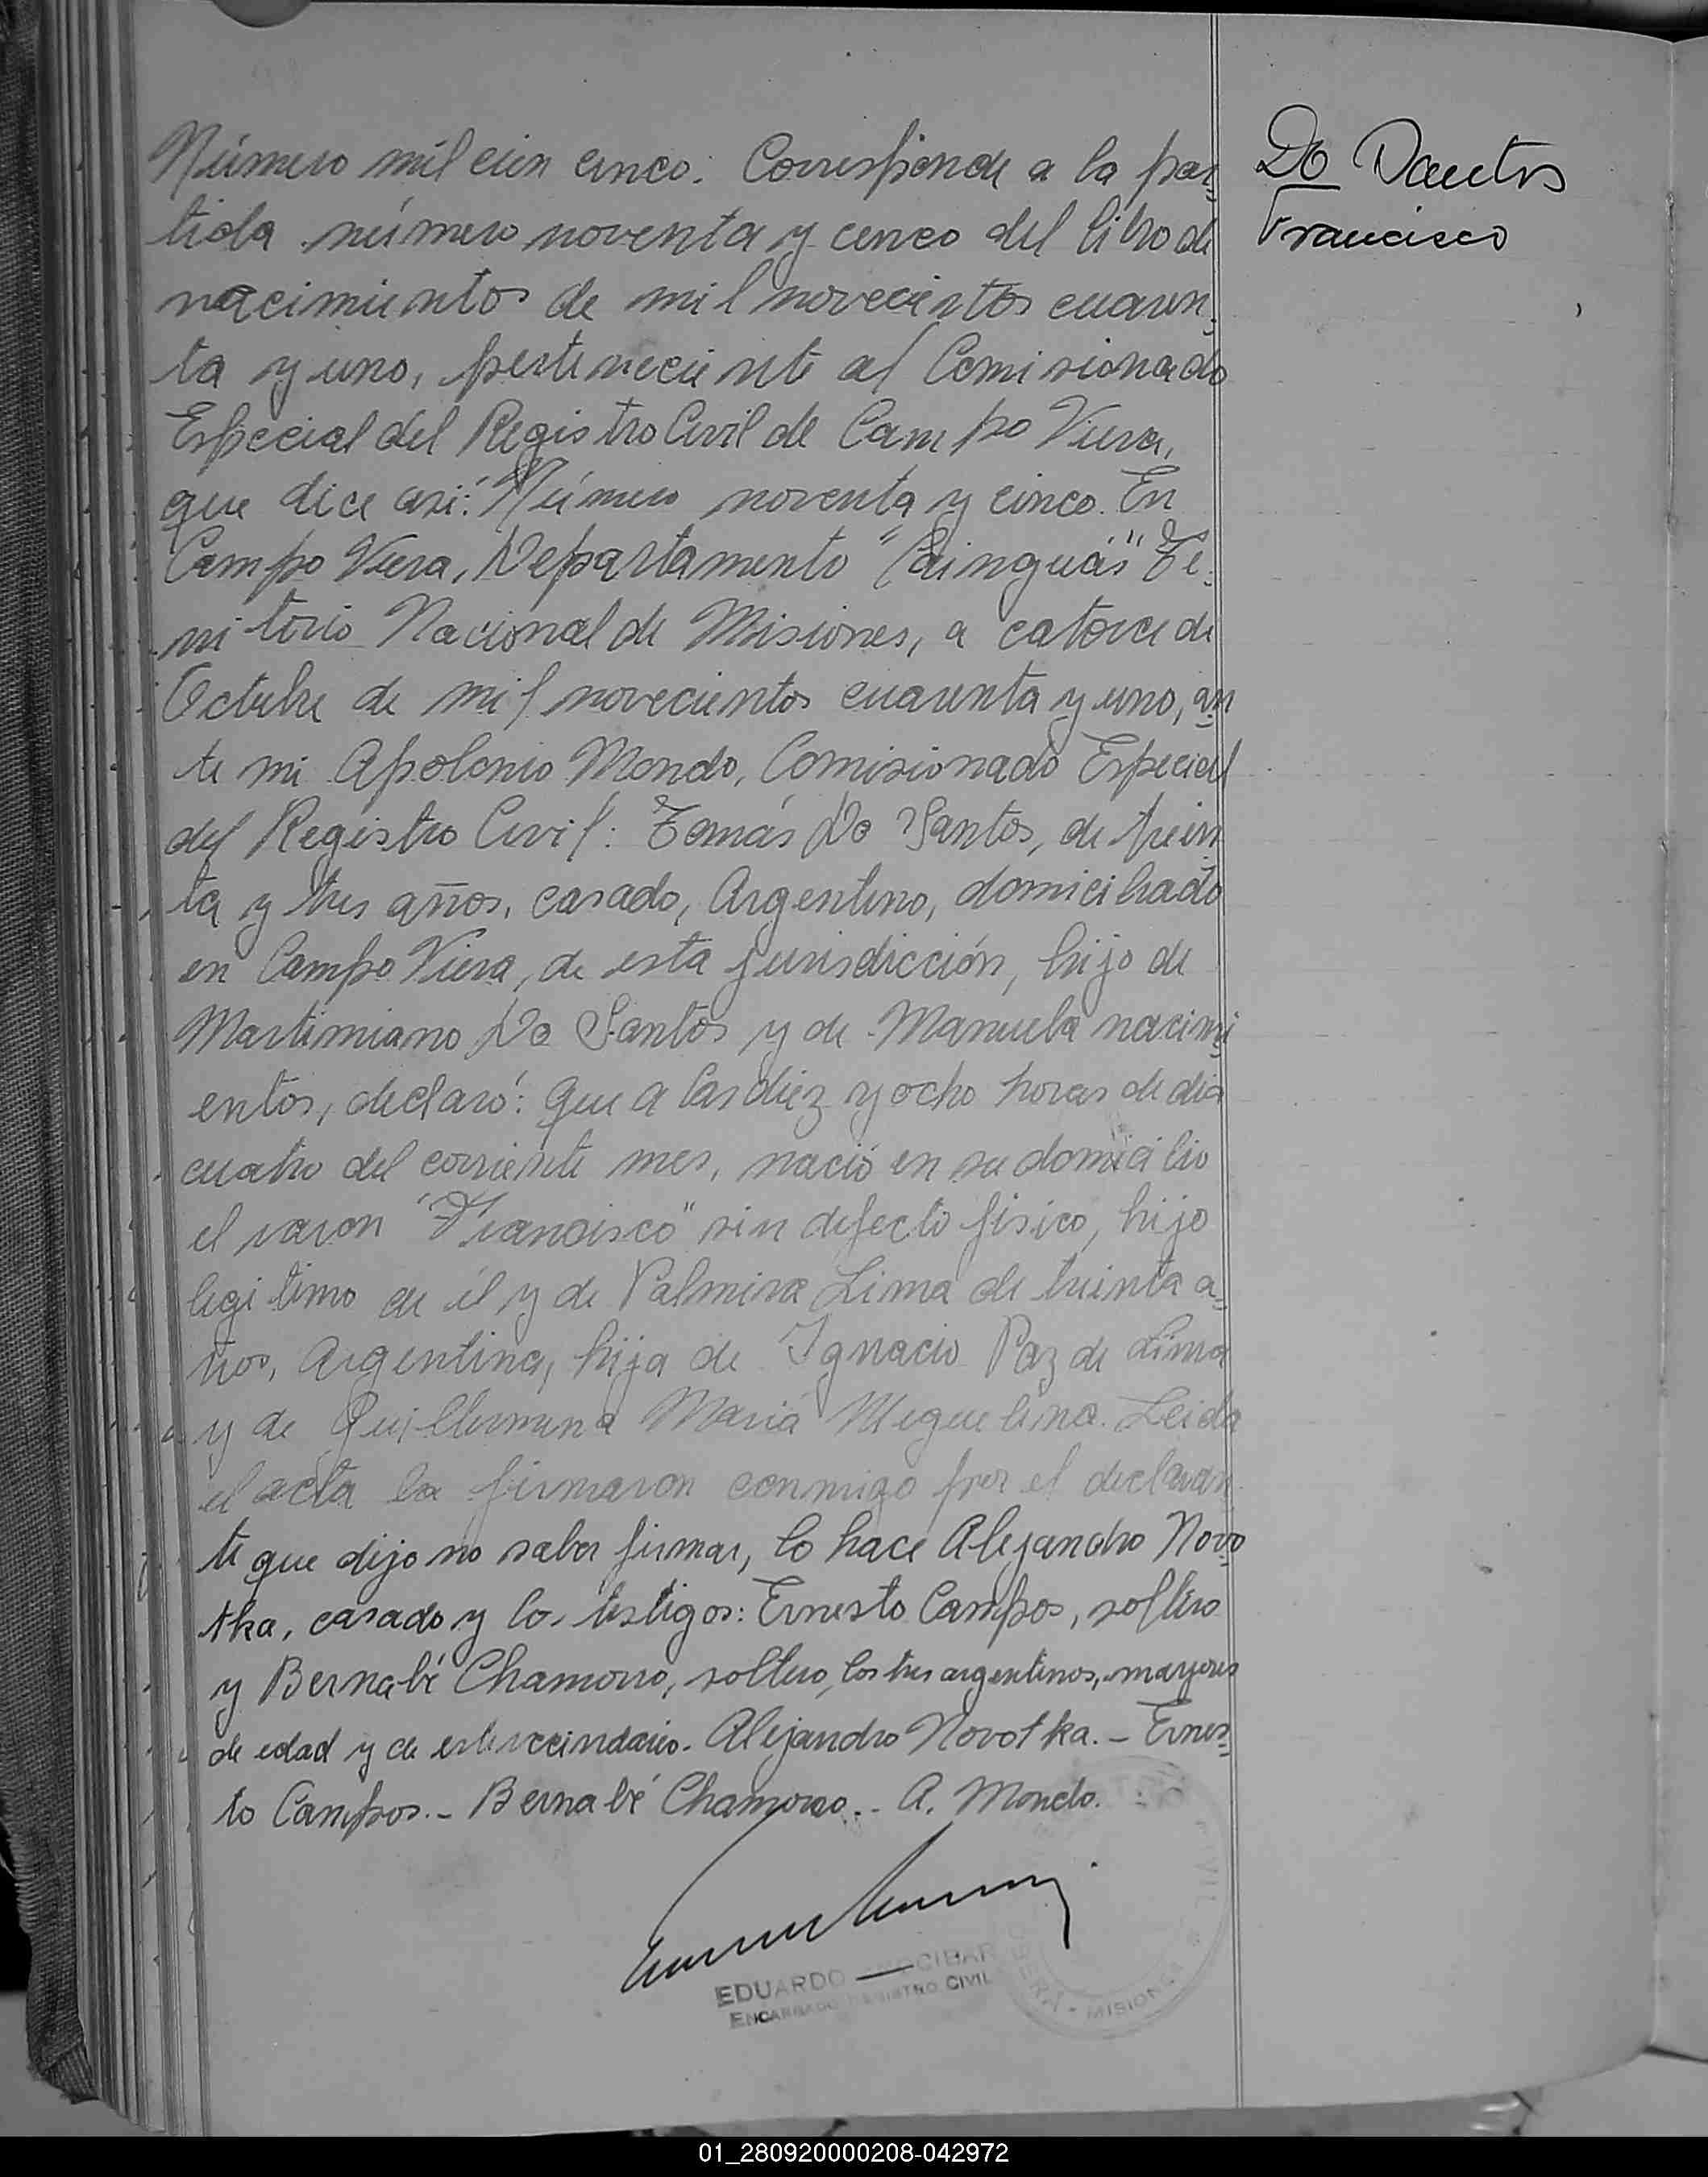 Número mil cien cinco. Corresponde a la par-
tida número noventa y cinco del libro de
nacimientos de mil novecientos cuaren-
ta y uno, perteneciente al Comisionado
Especial del Registro Civil de Campo Viera,
que dice asi: Número noventa y cinco. En
Campo Viera, Departamento "Cainguás" Te-
rritorio Nacional de Misiones, a catorce de
Octubre de mil novecientos cuarenta y uno, an-
te mi Apolonio Mondo, Comisionado Especial
del Registro Civil: Tomás Do Santos, de trein-
ta y tres años, casado, Argentino, domiciliado
en Campo Viera, de esta jurisdicción, hijo de
Martimiano Do Santos y de Manuela nacimi-
entos, declaró: que a las diez y ocho horas de dia
cuatro del corriente mes, nació en su domicilio
el varon "Francisco" sin defecto fisico, hijo
legitimo de él y de Palmira Lima de treinta a-
ños, Argentina, hija de Ignacio Paz de Lima
y de Guillermina Maria Miguelina. Leida
el acta la firmaron conmigo por el declaran-
te que dijo no saber firmar, lo hace Alejandro Novo-
tka, casado y los testigos: Ernesto Campos, soltero
y Bernabé Chamorro, soltero, los tres argentinos, mayores
de edad y de este vecindario. Alejandro Novotka. - Ernes-
to Campos. - Bernabé Chamorro. - A. Mondo.
Do Santos
Francisco
EDUARDO
ENCARGADO REGISTRO CIVIL
MISIONES
01_280920000208-042972